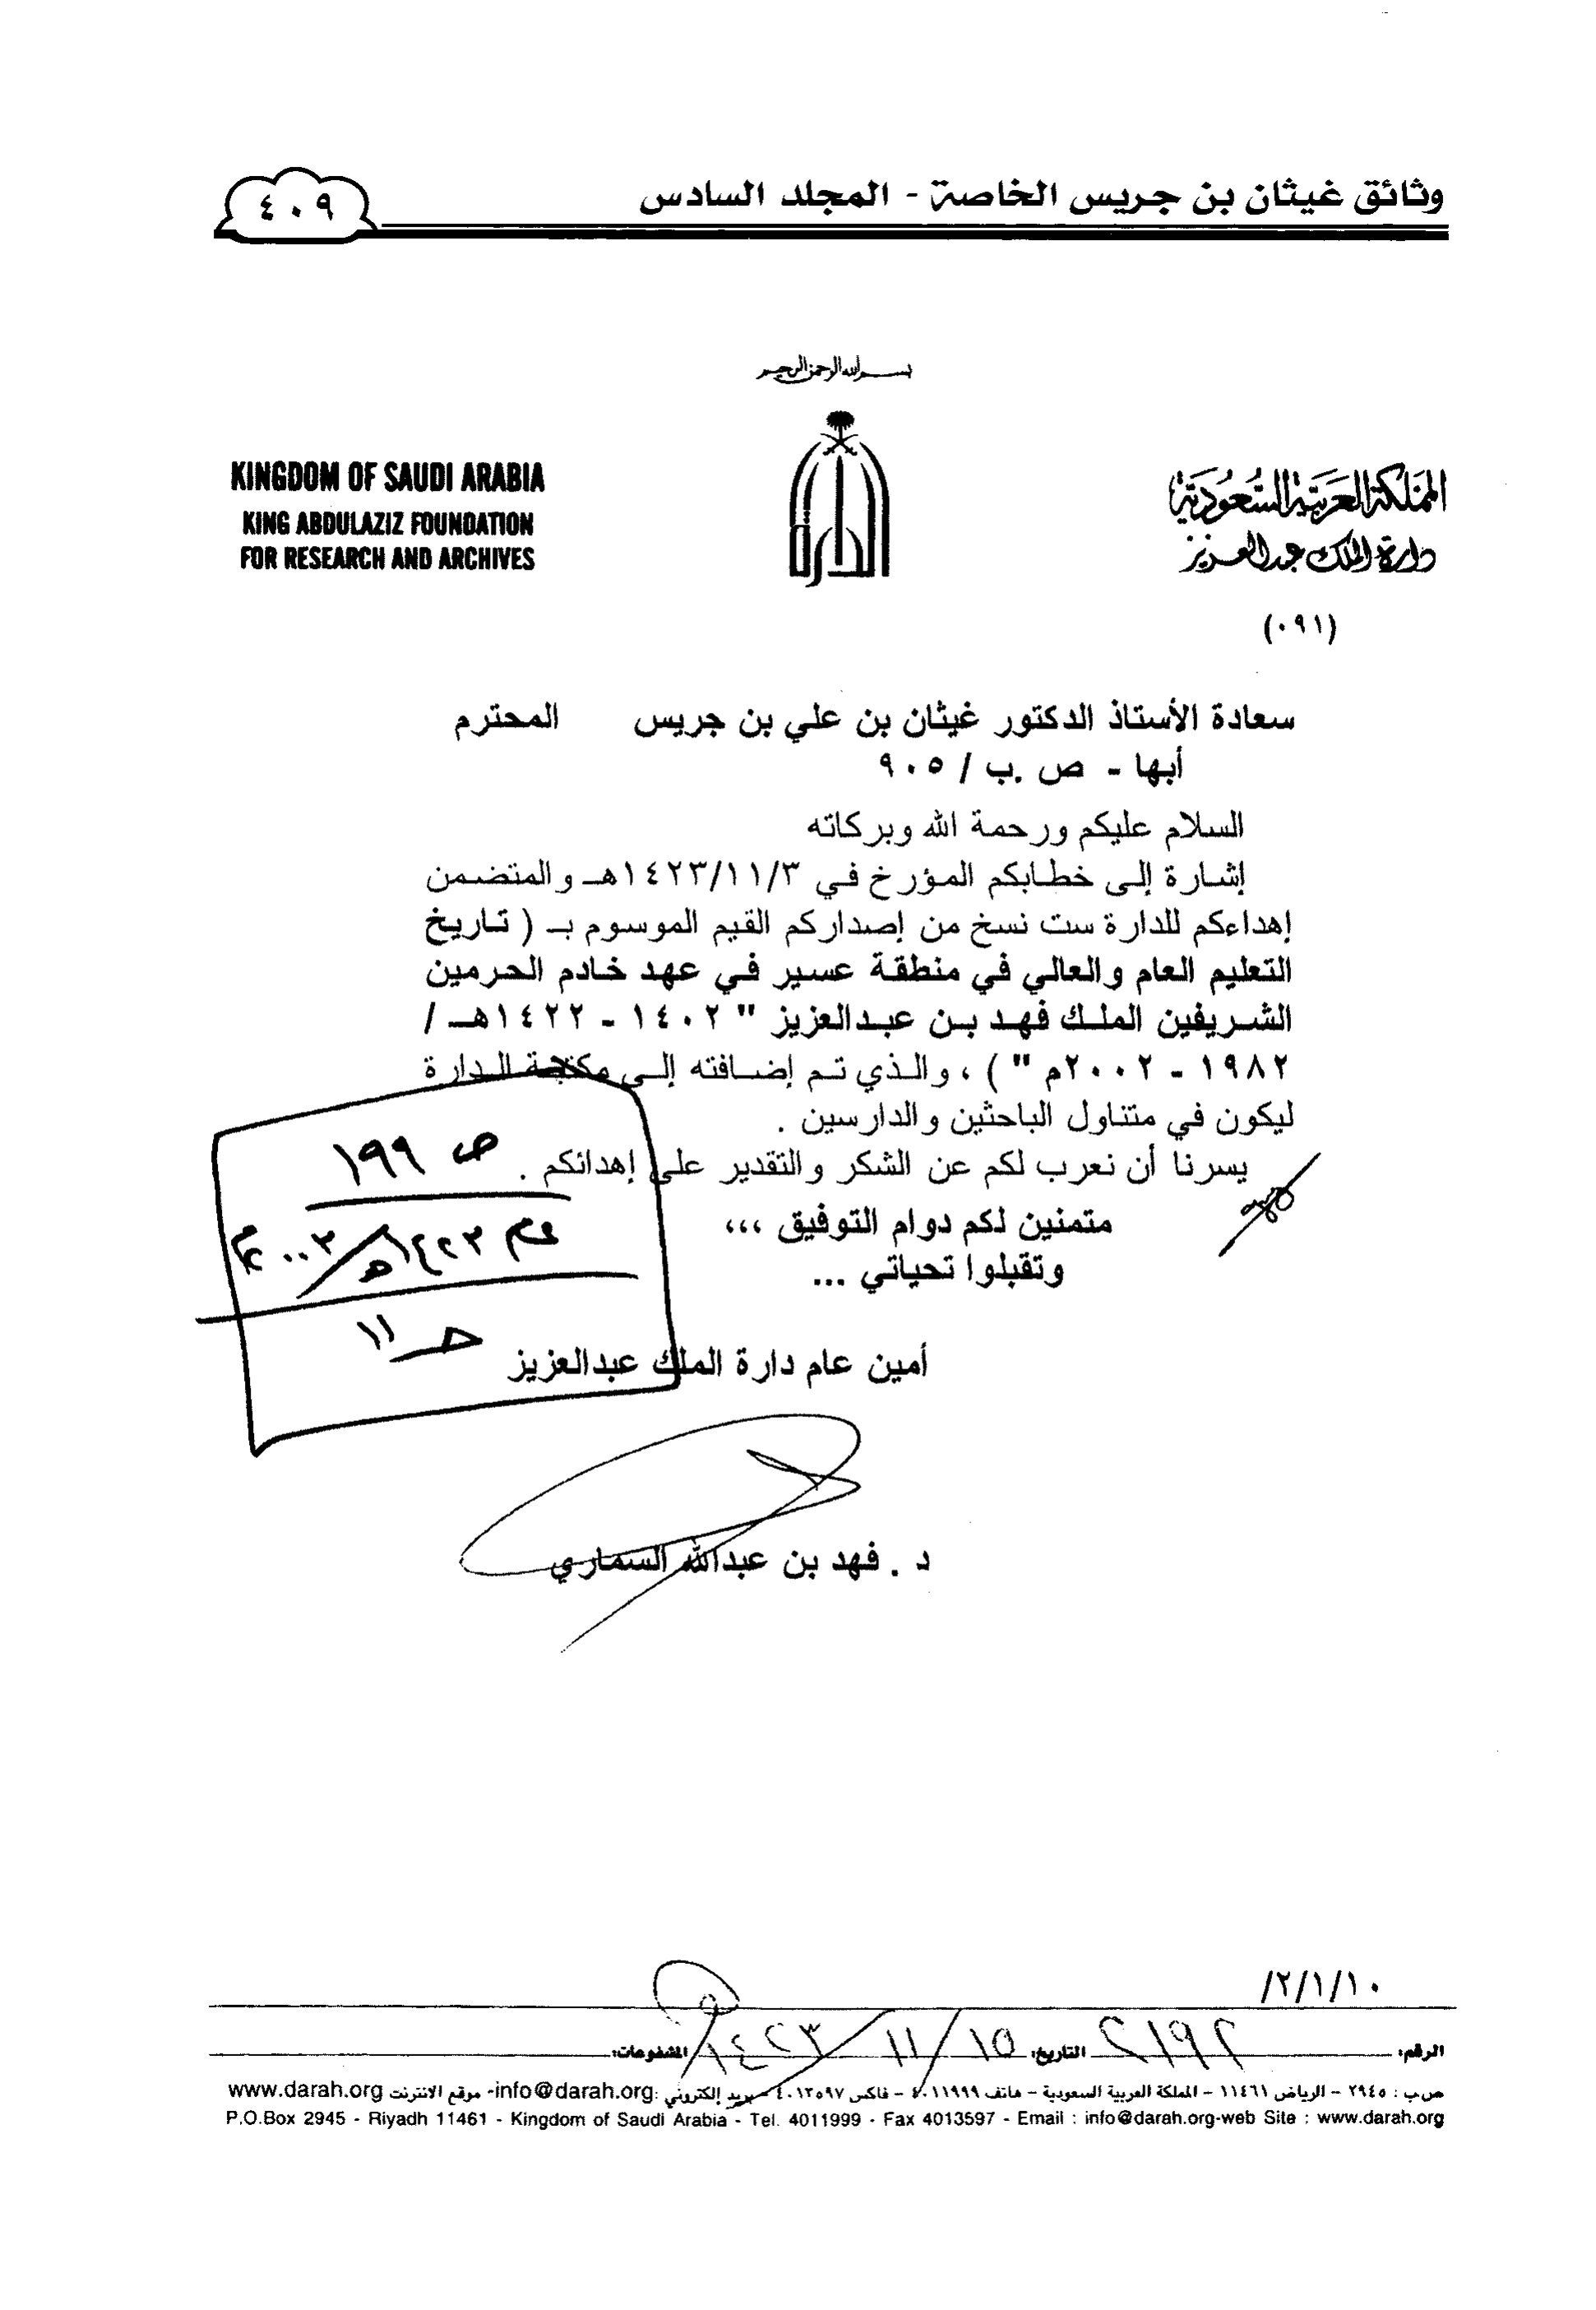 وثائق غيثان بن جريس الخاصة - المجلد السادس
٤٠٩
بسم الله الرحمن الرحيم
KINGDOM OF SAUDI ARABIA
KING ABDULAZIZ FOUNDATION
FOR RESEARCH AND ARCHIVES
الدارة
المملكة العربية السعودية
دارة الملك عبدالعزيز
(٠٩١)
سعادة الأستاذ الدكتور غيثان بن علي بن جريس المحترم
أبها - ص.ب / ٩٠٥
السلام عليكم ورحمة الله وبركاته
إشارة إلى خطابكم المؤرخ في ١٤٢٣/١١/٣هـ والمتضمن
إهداءكم للدارة ست نسخ من إصداركم القيم الموسوم بـ ( تاريخ
التعليم العام والعالي في منطقة عسير في عهد خادم الحرمين
الشريفين الملك فهد بن عبدالعزيز " ١٤٠٢ - ١٤٢٢هـ /
١٩٨٢ - ٢٠٠٢م " ) ، والذي تم إضافته إلى مكتبة الدارة
ليكون في متناول الباحثين والدارسين .
يسرنا أن نعرب لكم عن الشكر والتقدير على إهدائكم .
متمنين لكم دوام التوفيق ،،،
وتقبلوا تحياتي ...
ص ١٩٩
١٤٢٣هـ/٢٠٠٣م
حـ ١١
أمين عام دارة الملك عبدالعزيز
د . فهد بن عبدالله السماري
/٢/١/١٠
الرقم: ٢١٩٢ التاريخ: ١٥/١١/١٤٢٣ المشفوعات:
ص ب : ٢٩٤٥ - الرياض ١١٤٦١ - المملكة العربية السعودية - هاتف ٤٠١١٩٩٩ - فاكس ٤٠١٣٥٩٧ - بريد إلكتروني :info@darah.org- موقع الانترنت www.darah.org
P.O.Box 2945 - Riyadh 11461 - Kingdom of Saudi Arabia - Tel. 4011999 - Fax 4013597 - Email : info@darah.org-web Site : www.darah.org